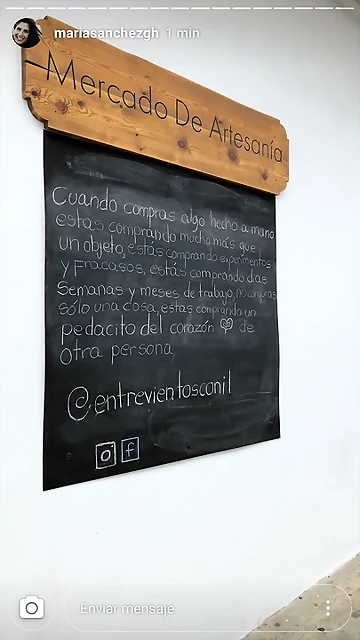 mariasanchezgh 1 min
Mercado De Artesanía
Cuando compras algo hecho a mano
estas comprando mucho más que
un objeto, estás comprando experimentos
y Fracasos, estás comprando días
Semanas y meses de trabajo, no compras
sólo una cosa, estas comprando un
pedacito del corazón de
Otra persona
@entrevientosconil
f
Enviar mensaje